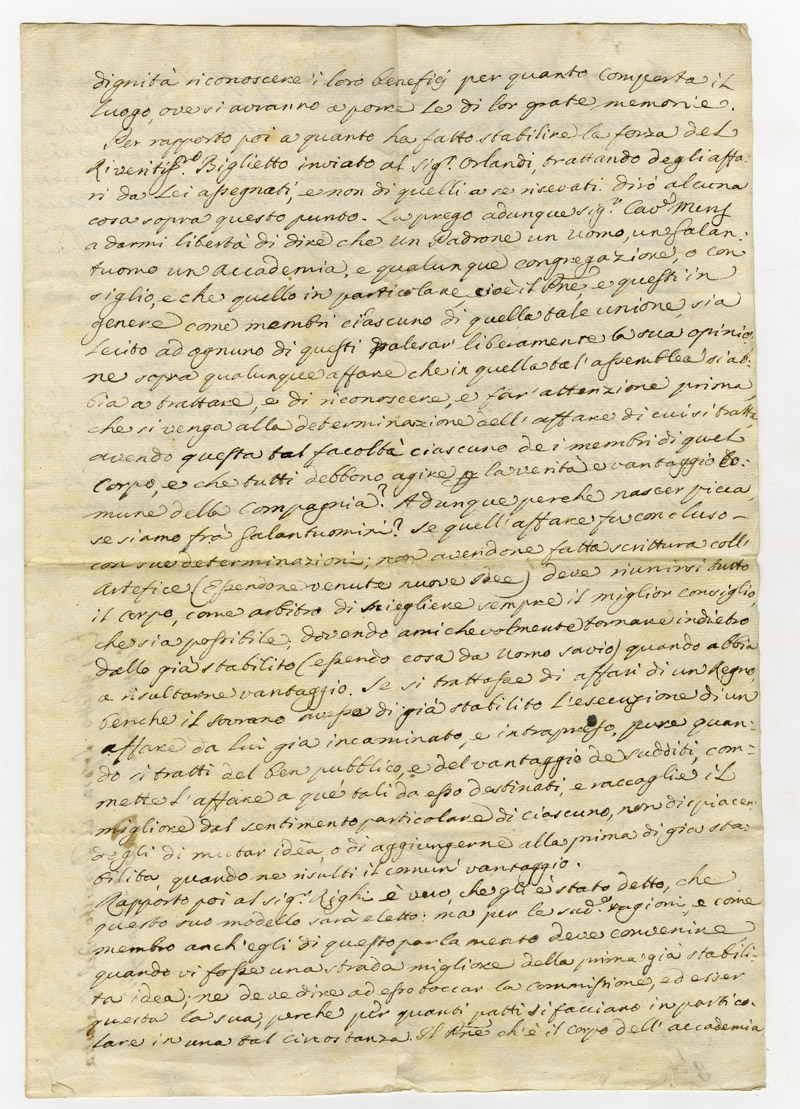 dignità riconoscere i loro beneficj per quanto comporta il
luogo, ove si avranno a porre le di lor grate memorie.
Per rapporto poi a quanto ha fatto stabilire la forza del
Riveritiss.mo Biglietto inviato al sig.r Orlandi, trattando degli affa-
ri da Lei assegnati, e non di quelli a se riservati. dirò alcuna
cosa sopra questo punto. La prego adunque sig.r Cav.e
a darmi libertà di dire che un Padrone un uomo, un Galan-
tuomo un Accademia, e qualunque congregazione, o con
siglio, e che quello in particolare cioè il Pñe, e questi in
genere come membri ciascuno di quella tale unione, sia
lecito ad ognuno di questi palesar liberamente la sua opinio
ne sopra qualunque affare che in quella tal' assemblea si ab-
bia a trattare, e di riconoscere, e far' attenzione prima,
che si venga alla determinazione dell' affare di cui si tratta,
avendo questa tal facoltà ciascuno de i membri di quel
Corpo, e che tutti debbono agire p la verità e vantaggio Co-
mune della Compagnia? Adunque perche nascer picca,
se siamo frà Galantuomini? Se quell' affare fu concluso
con sue determinazioni; non avendone fatta scrittura coll'
Artefice (essendone venute nuove idee) deve riunirsi tutto
il corpo, come arbitro di sciegliere sempre il miglior consiglio,
che sia possibile, dovendo amichevolmente tornare indietro
dallo già stabilito (essendo cosa da Uomo savio) quando abbia
a risultarne vantaggio. Se si trattasse di affari di un Regno,
benche il sovrano avesse di già stabilito l'esecuzione di un
affare da lui già incaminato, e intrapreso, pure quan-
do si tratti del ben pubblico, e del vantaggio de sudditi, com-
mette l'affare a què tali da esso destinati, e raccoglie il
migliore dal sentimento particolare di ciascuno, non dispiacen
dogli di mutar idea, o di aggiungerne alla prima di già sta-
bilita, quando ne risulti il comun' vantaggio.
Rapporto poi al sig.r Righi è vero, che gli è stato detto, che
questo suo modello sarà eletto: ma per le sud.e ragioni, e come
membro anch'egli di questo parlamento deve convenire,
quando vi fosse una strada migliore della prima già stabili-
ta idea; ne deve dire ad esso toccar la commissione, ed esser
questa la sua, perche per quanti patti si facciano in partico-
lare in una tal circostanza. Il Pñe ch'è il corpo dell' accademia